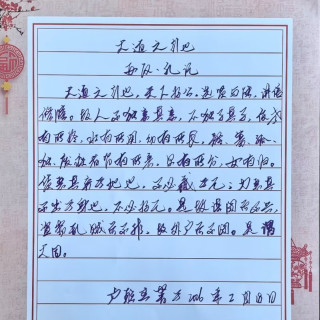 大道之行也
西汉·礼记
大道之行也,天下为公。选贤与能,讲信
修睦。故人不独亲其亲,不独子其子,使老
有所终,壮有所用,幼有所长,矜、寡、孤、
独、废疾者皆有所养,男有分,女有归。
货恶其弃于地也,不必藏于己;力恶其
不出于身也,不必为己。是故谋闭而不兴,
盗窃乱贼而不作,故外户而不闭。是谓
大同。
年2月